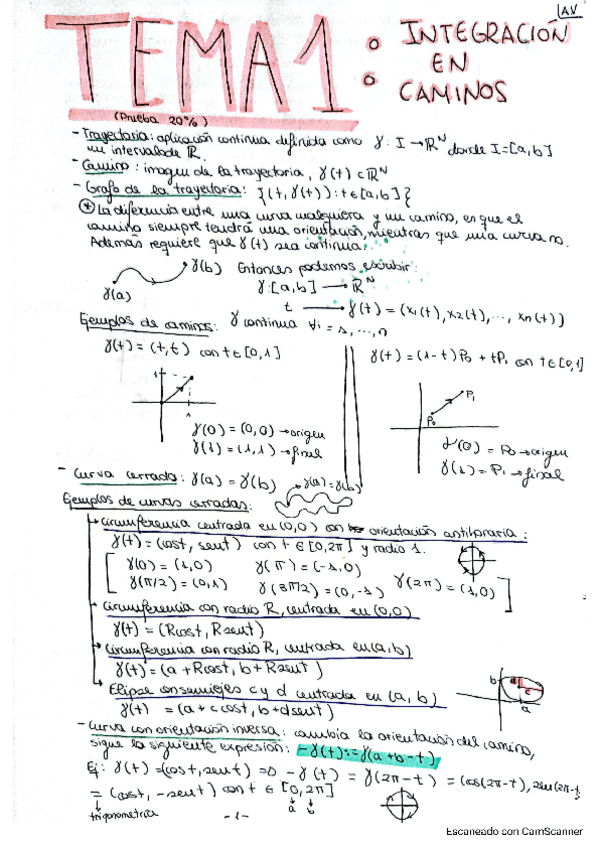 AV
TEMA 1: INTEGRACIÓN
EN
CAMINOS
(Prueba 20%)
- Trayectoria: aplicación continua definida como γ: I → ℝᴺ donde I=[a,b]
un intervalo de ℝ.
- Camino: imagen de la trayectoria, γ(t) ⊂ ℝᴺ
- Grafo de la trayectoria: {(t, γ(t)): t∈[a,b]}
* La diferencia entre una curva cualquiera y un camino, es que el
camino siempre tendrá una orientación, mientras que una curva no.
Además requiere que γ(t) sea continua.
γ(a) γ(b) Entonces podemos escribir:
γ: [a,b] → ℝᴺ
t → γ(t) = (x₁(t), x₂(t), ..., xₙ(t))
Ejemplos de caminos: γ continua ∀i = 1, ..., n
γ(t) = (t,t) con t∈[0,1]
γ(t) = (1-t)P₀ + tP₁ con t∈[0,1]
1
1
P₀ P₁
γ(0) = (0,0) → origen
γ(1) = (1,1) → final
γ(0) = P₀ → origen
γ(1) = P₁ → final
- Curva cerrada: γ(a) = γ(b) γ(a)=γ(b)
Ejemplos de curvas cerradas:
Circunferencia centrada en (0,0) con orientación antihoraria:
γ(t) = (cost, sent) con t ∈ [0,2π] y radio 1.
[ γ(0) = (1,0) γ(π) = (-1,0)
γ(π/2) = (0,1) γ(3π/2) = (0,-1) γ(2π) = (1,0) ]
Circunferencia con radio R, centrada en (0,0)
γ(t) = (Rcost, Rsent)
Circunferencia con radio R, centrada en (a,b)
γ(t) = (a + Rcost, b + Rsent)
Elipse con semiejes c y d centrada en (a,b)
γ(t) = (a + c cost, b + dsent)
b d c
a
- Curva con orientación inversa: cambia la orientación del camino,
sigue la siguiente expresión: -γ(t) := γ(a+b-t)
Ej: γ(t) = (cost, 2sent) => -γ(t) = γ(2π-t) = (cos(2π-t), 2sen(2π-
= (cost, -sent) con t ∈ [0,2π]
a b
trigonometría
-1-
Escaneado con CamScanner